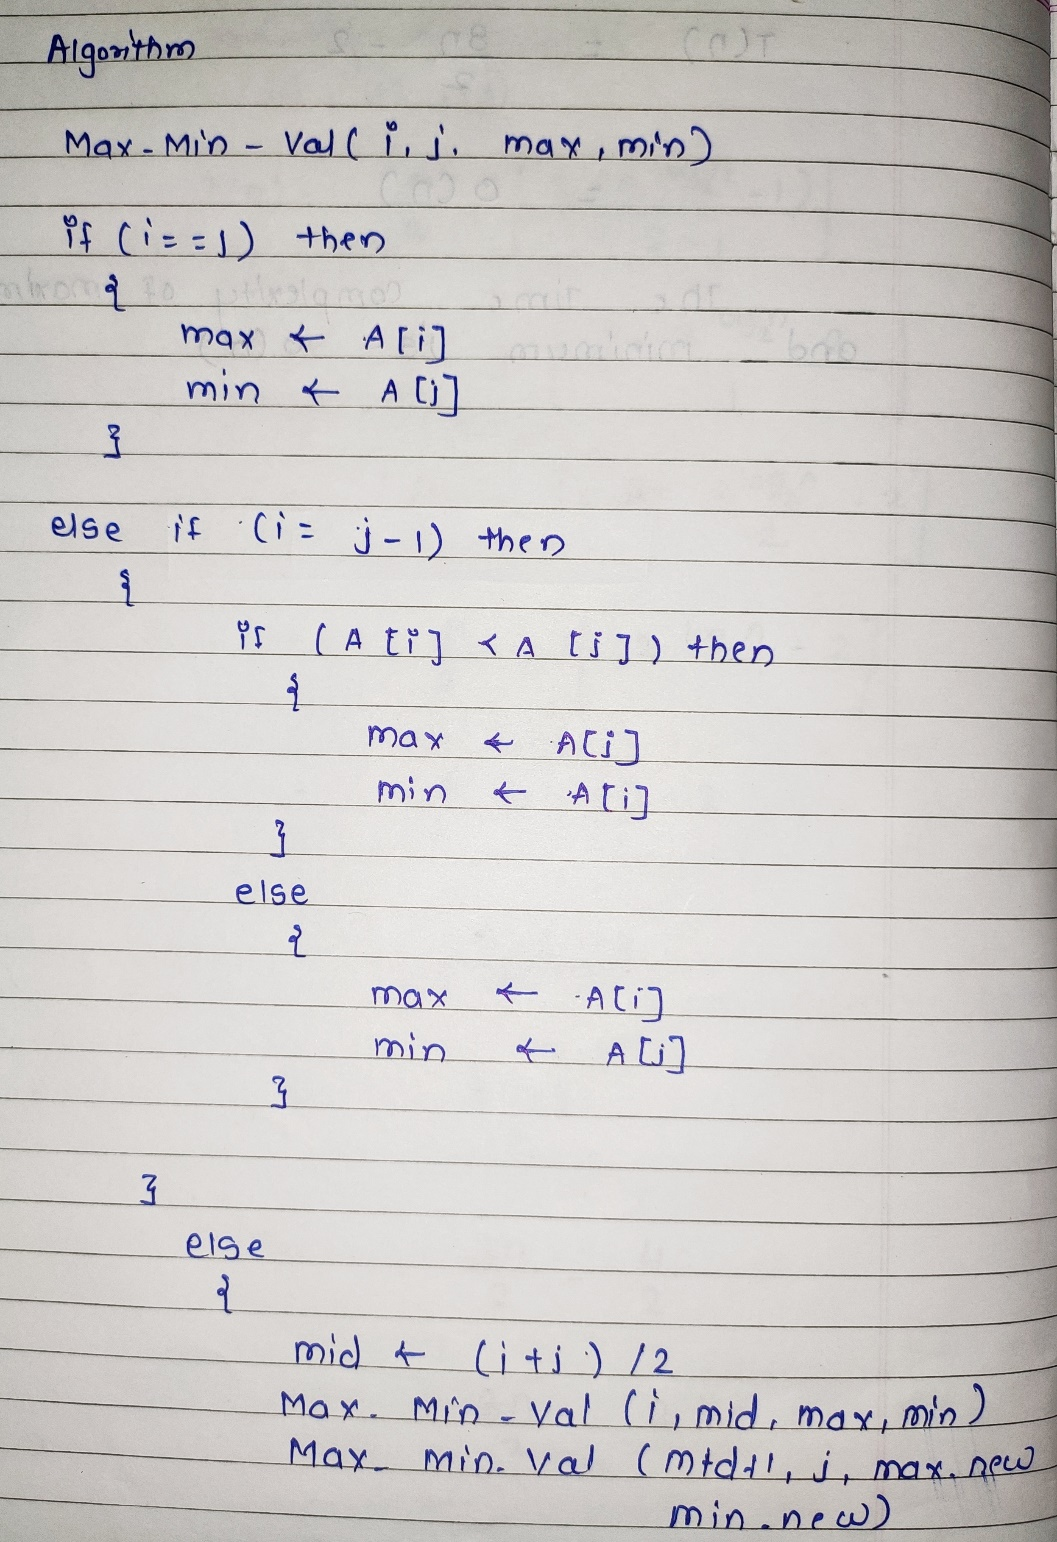 Algorithm
Max-Min-Val( i, j, max, min)
if (i==j) then
{
max ← A[i]
min ← A[j]
}
else if (i= j-1) then
{
if (A[i] < A[j]) then
{
max ← A[j]
min ← A[i]
}
else
{
max ← A[i]
min ← A[j]
}
}
else
{
mid ← (i+j) /2
Max-Min-Val (i, mid, max, min)
Max-min-Val (mid+1, j, max-new
min-new)